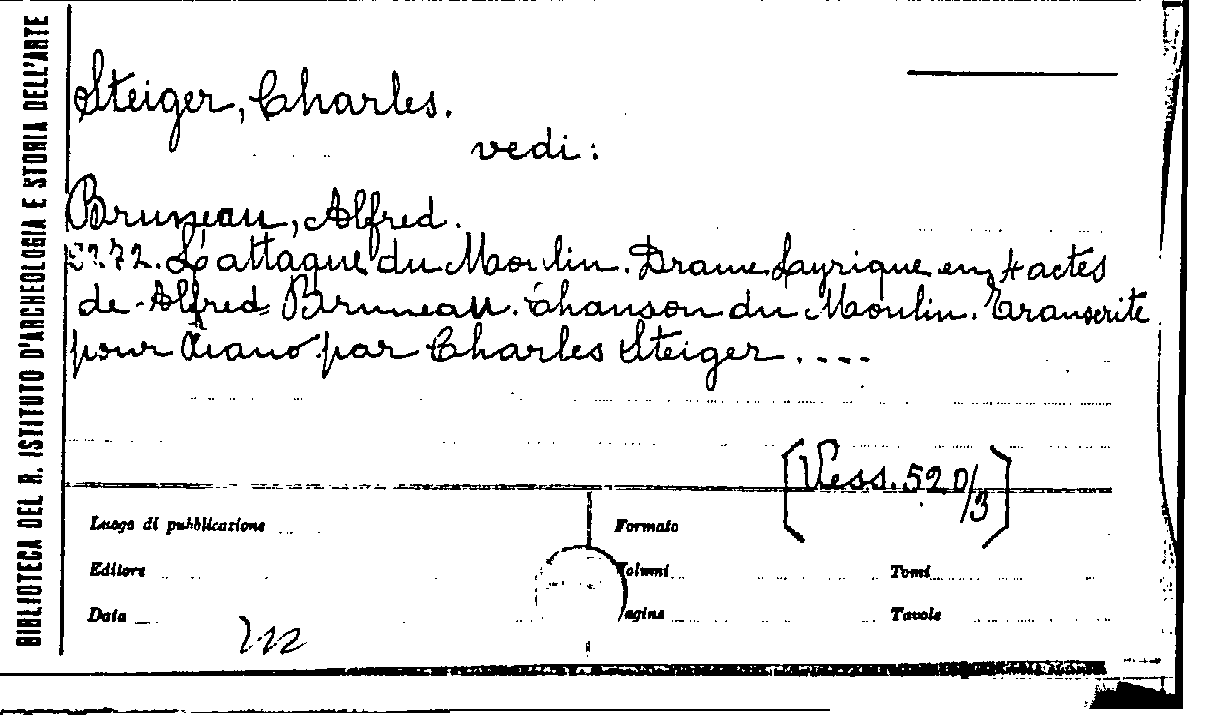 BIBLIOTECA DEL R. ISTITUTO D'ARCHEOLOGIA E STORIA DELL'ARTE
Steiger, Charles.
vedi:
Bruneau, Alfred.
5272. L'attaque du Moulin. Drame Layrique en 4 actes
de Alfred Bruneau. Chanson du Moulin. Transcrite
pour Piano par Charles Steiger ....
[Vess. 520/3]
Luogo di pubblicazione
Formato
Editore
Volumi
Tomi
Data
Pagine
Tavole